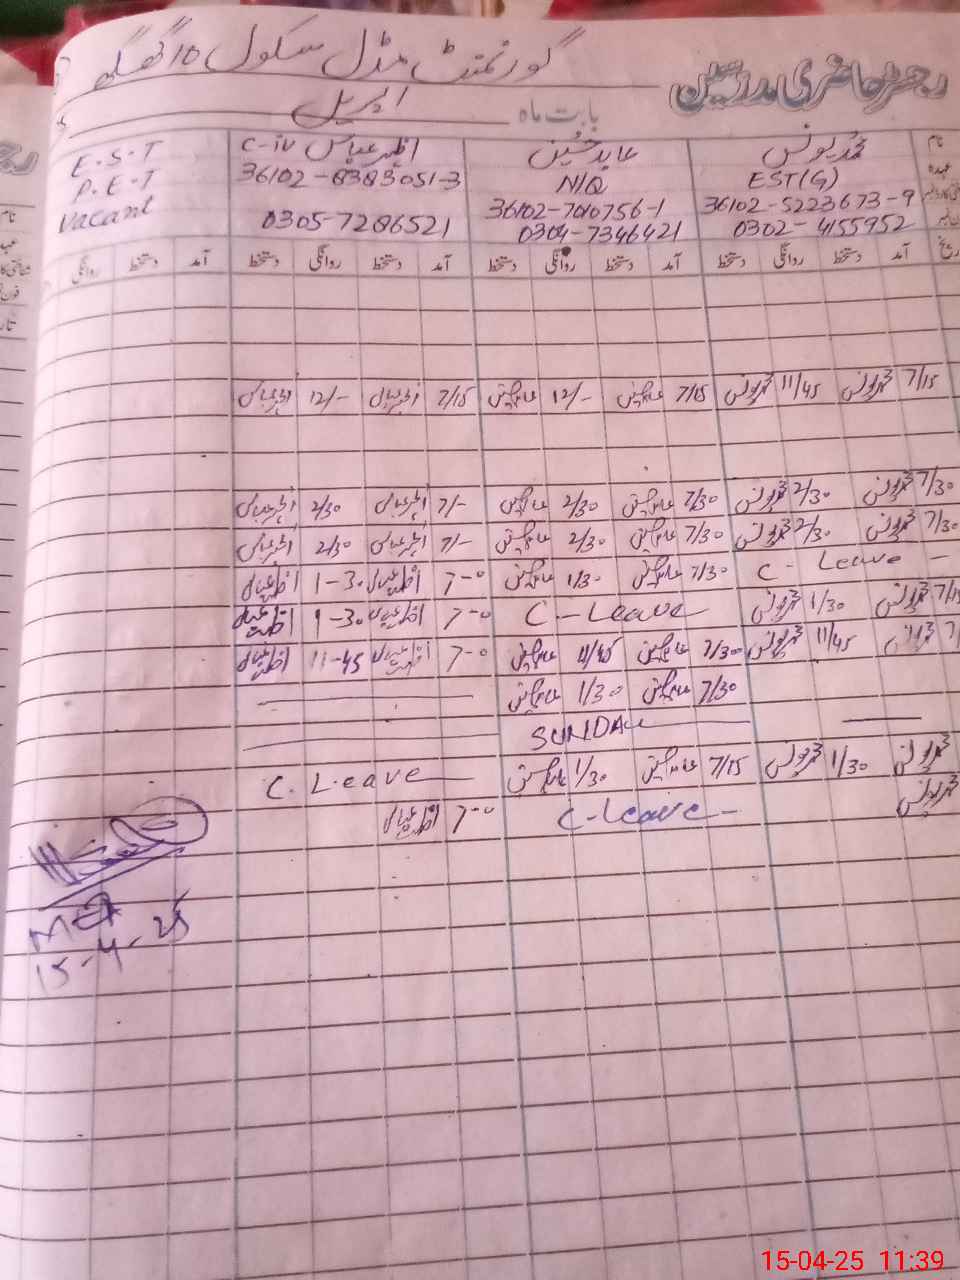 گورنمنٹ مڈل سکول 10 گھگھ
رجسٹر حاضری مدرسین
بابت ماہ اپریل
نام محمد یونس عابد حسین اظہر عباس C-iv E.S.T
عہدہ EST(G) N/Q 36102-8383051-3 P.E.T
36102-5223673-9 36102-7010756-1 Vacant
0302-4155952 0304-7346421 0305-7286521
آمد دستخط روانگی آمد دستخط روانگی دستخط آمد دستخط روانگی دستخط آمد دستخط روانگی
7/15 محمد یونس 11/45 محمد یونس 7/15 عابد حسین 12/- عابد حسین 7/15 اظہر عباس 12/- اظہر عباس
7/30 محمد یونس 2/30 محمد یونس 7/30 عابد حسین 2/30 عابد حسین 7/- اظہر عباس 2/30 اظہر عباس
7/30 محمد یونس 2/30 محمد یونس 7/30 عابد حسین 2/30 عابد حسین 7/- اظہر عباس 2/30 اظہر عباس
C-Leave 7/30 عابد حسین 1/30 عابد حسین 7-0 اظہر عباس 1-30 اظہر عباس
7/15 محمد یونس 1/30 محمد یونس C-Leave 7-0 اظہر عباس 1-30 اظہر عباس
محمد یونس 11/45 محمد یونس 7/30 عابد حسین 11/45 عابد حسین 7-0 اظہر عباس 11-45 اظہر عباس
7/30 عابد حسین 1/30 عابد حسین
SUNDAY
محمد یونس 1/30 محمد یونس 7/15 عابد حسین 1/30 عابد حسین C.Leave
محمد یونس C-Leave- 7-0 اظہر عباس
15-4-25
15-04-25 11:39